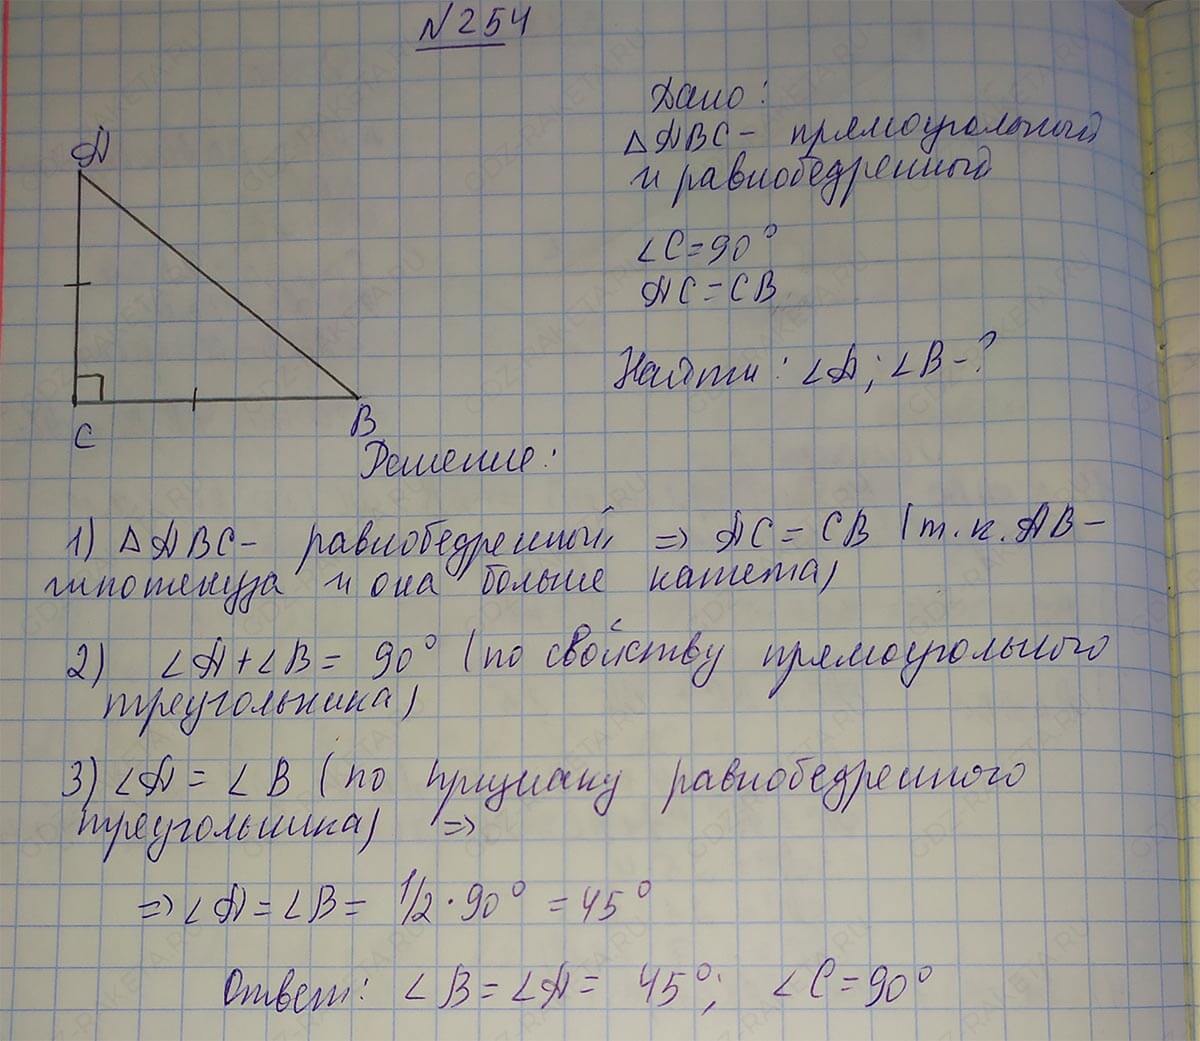 N254
Дано:
△ABC - прямоугольный
и равнобедренный
∠C=90°
AC=CB
Найти: ∠A; ∠B-?
A
C
B
Решение:
1) △ABC - равнобедренный => AC = CB (т.к. AB -
гипотенуза и она больше катета)
2) ∠A+∠B= 90° (по свойству прямоугольного
треугольника)
3) ∠A = ∠B (по признаку равнобедренного
треугольника) =>
=> ∠A=∠B= 1/2·90° = 45°
Ответ: ∠B=∠A= 45°; ∠C=90°
GDZ-RAKETA.RU